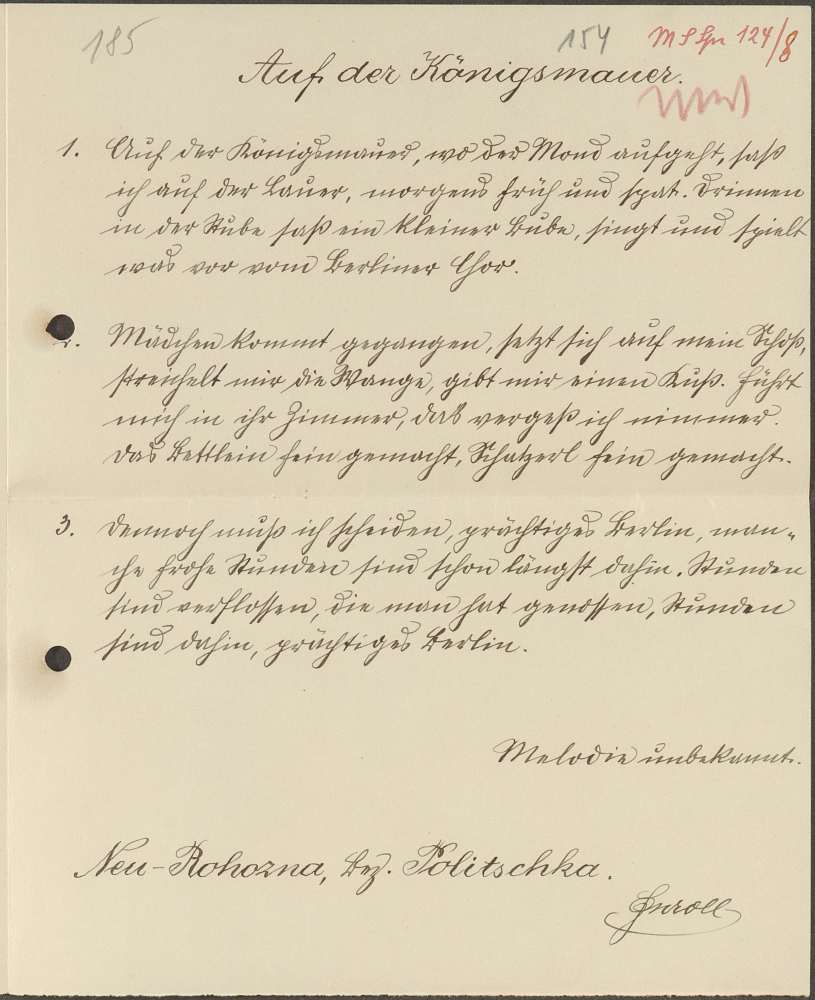 185
154
124/8
Auf der Königsmauer.
1. Auf der Königsmauer, wo der Mond aufgeht, saß
ich auf der Lauer, morgens früh und spat. Drinnen
in der Stube saß ein kleiner Bube, singt und spielt
was vor vom Berliner Chor.
2. Mädchen kommt gegangen, setzt sich auf mein Schoß,
streichelt mir die Wange, gibt mir einen Kuß. Führt
mich in ihr Zimmer, das vergeß ich nimmer.
Das Bettlein fein gemacht, Schatzerl fein gemacht.
3. Dennoch muß ich scheiden, prächtiges Berlin, man-
che frohe Stunden sind schon längst dahin. Stunden
sind verflossen, die man hat genossen, Stunden
sind dahin, prächtiges Berlin.
Melodie unbekannt.
Neu-Rohozna, Bez. Politschka.